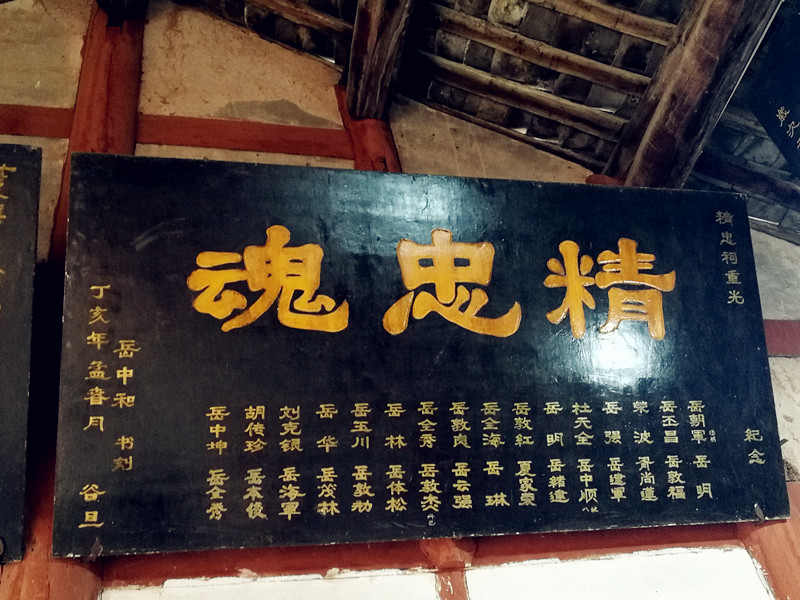 精忠祠重光
紀念
精忠魂
岳朝軍 岳明
岳丕昌 岳敦福
榮波 胥尚蓮
岳强 岳建軍
杜天全 岳中順
岳明 岳緒建
岳敦紅 夏家荣
岳全海 岳琳
岳敦良 岳云强
岳全秀 岳敦杰
岳林 岳体松
岳玉川 岳敦勃
岳华 岳茂林
刘克银 岳海軍
胡传珍 岳本俊
岳中坤 岳全秀
岳中和 书刻
丁亥年孟春月 谷旦
歲次